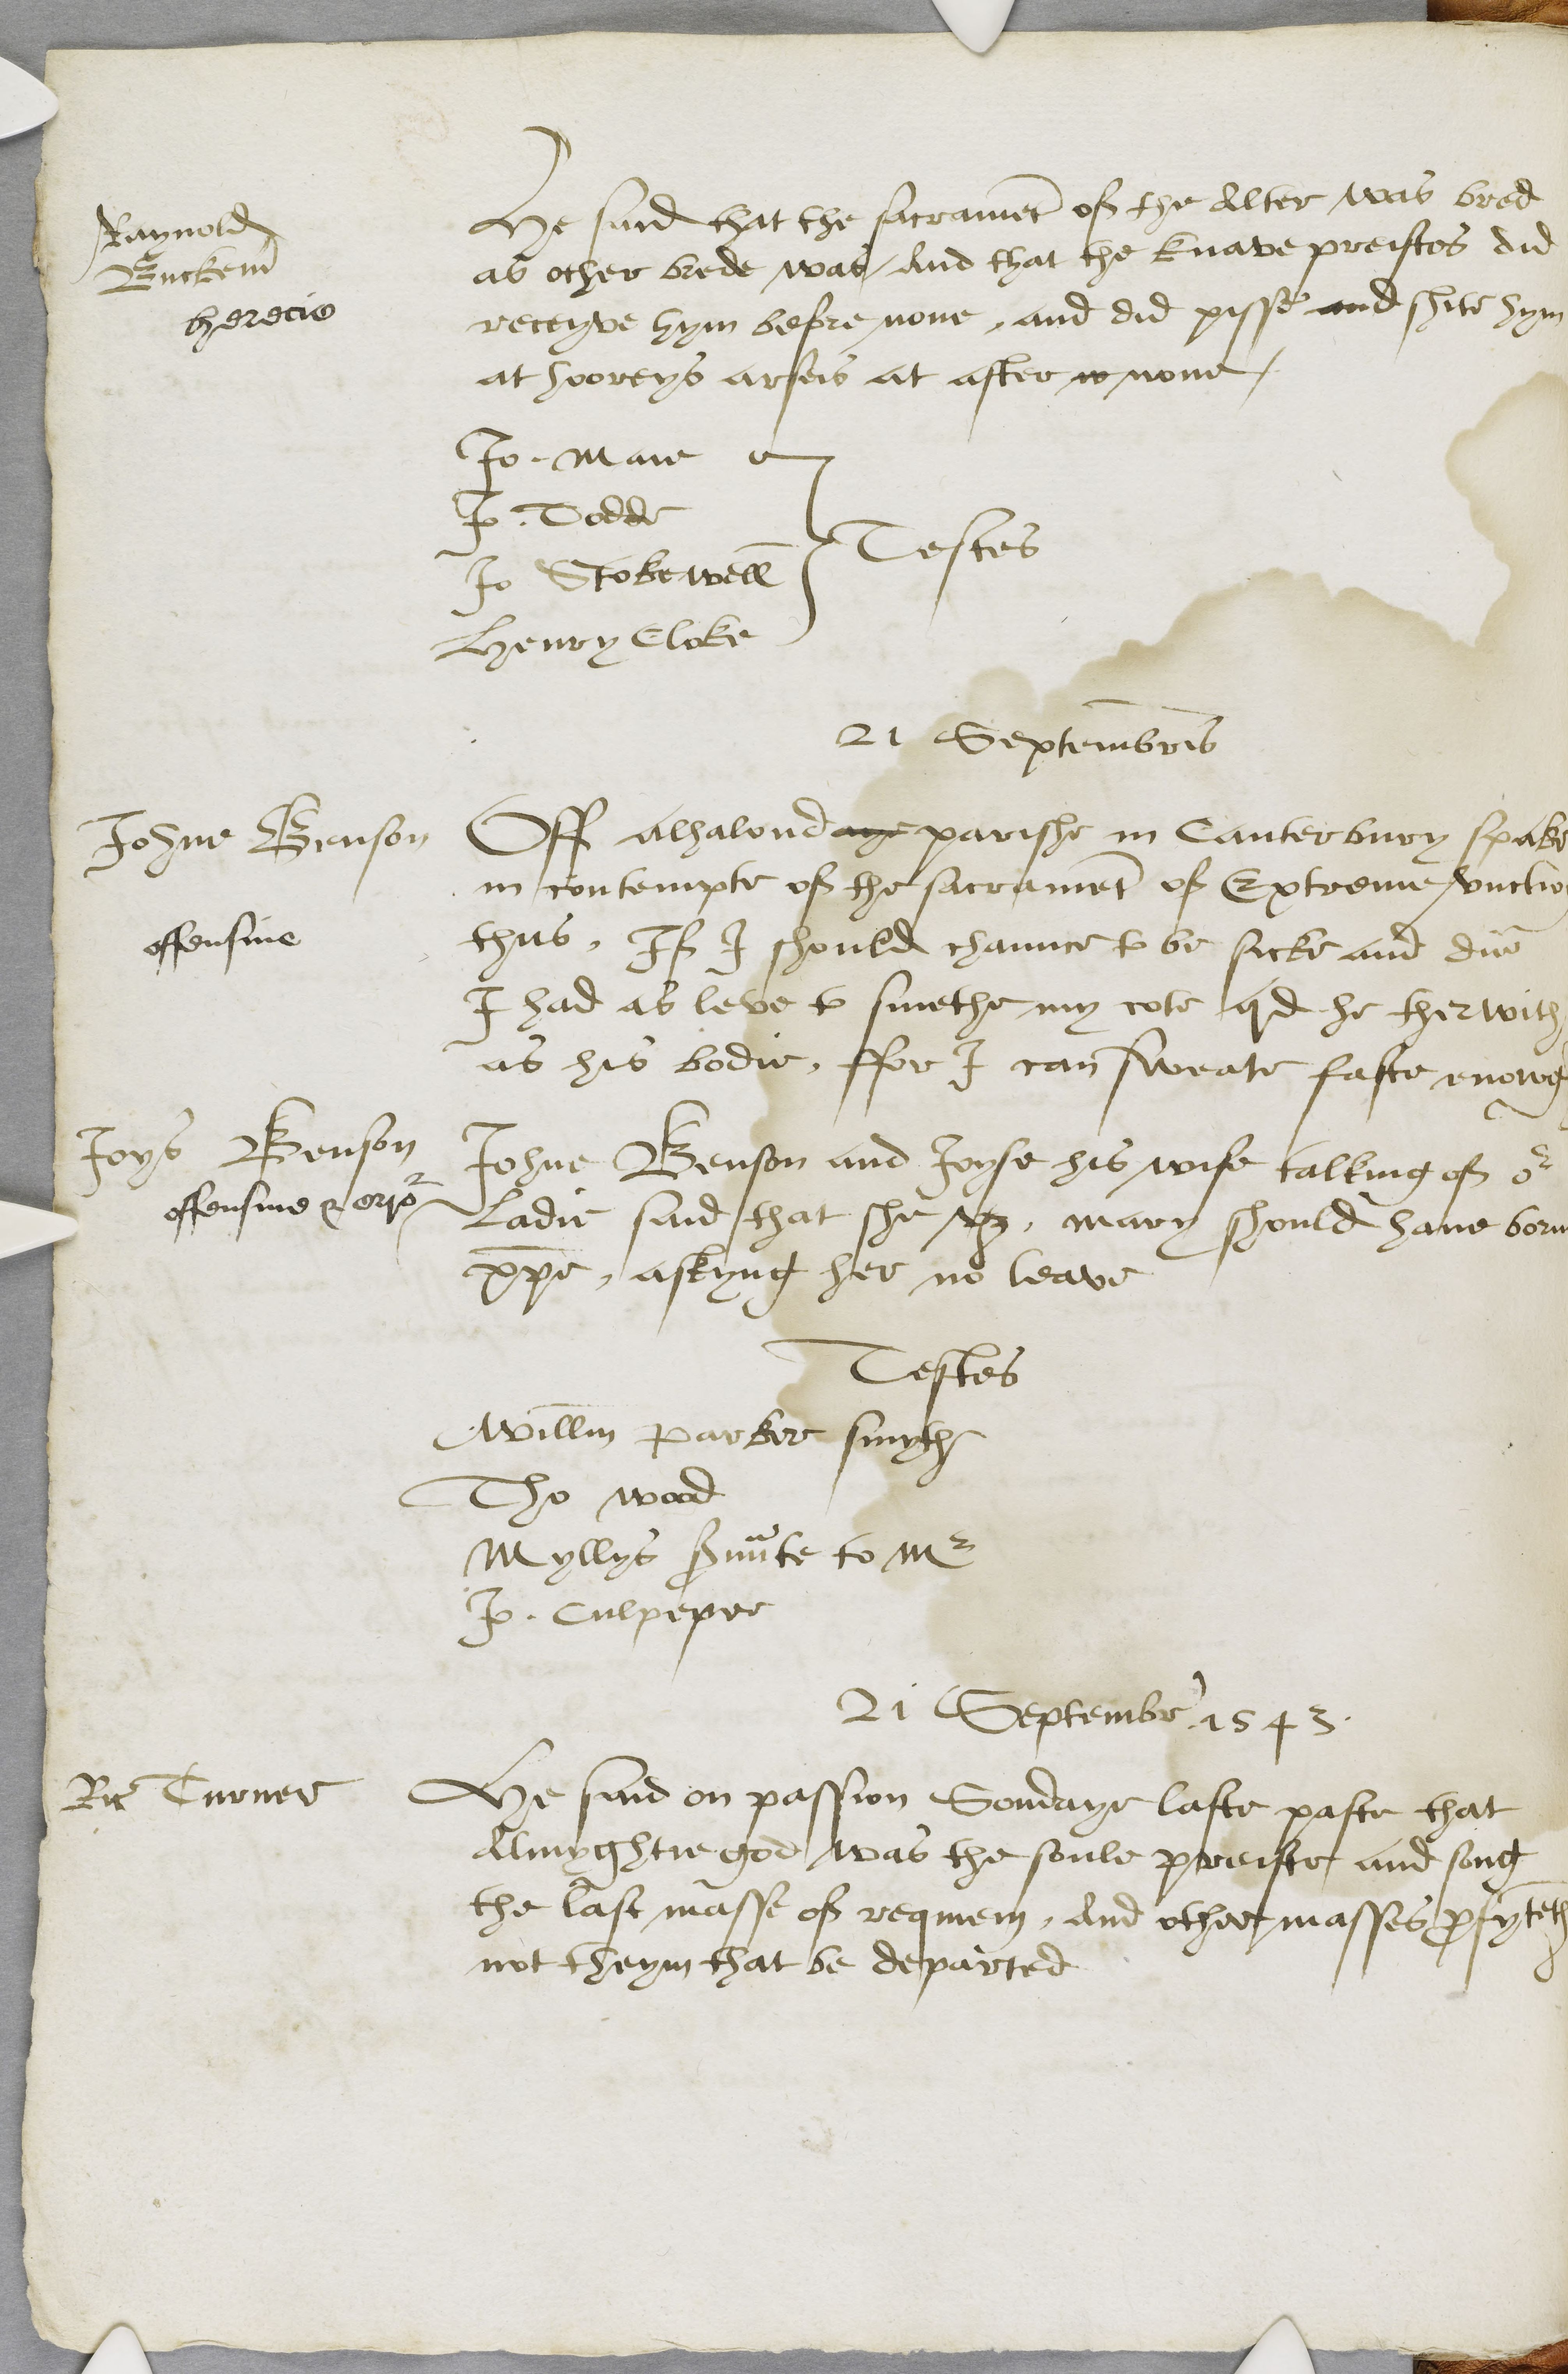 Raynold
Buckem
heresie
He said that the sacrament of the Alter was bred
as other brede was / And that the knave preistes did
receyve hym before none, and did pisse and shite hym
at hooreys arseis at after none /
Jo. Maie
Jo. Todde
Jo Stokewell
Henry Cloke
Testes
21 Septembris
Johne Benson
offensive
Off alhalond parishe in Canterbury spake
in contempte of the sacrament of Extreme vnctio
thus, If I should chaunce to be sicke and die
I had as leve to smethe my cote qd he therwith
as his bodie, ffor I can sweate faste enowg
Joys Benson
offensive & error
Johne Benson and Joyse his wife talking of or
Ladie said that she vz, mary should have born
ppe, askyng her no leave
Testes
Willm parker smyth
Tho wood
Myllys svaunte to Mr
Jo. Culpeper
21 Septembr 1543.
Ric Turner
He said on passion Sondaye laste paste that
Almyghtie god was the soule preiste and song
the last masse of requiem, And other masses profyteth
not theym that be departed